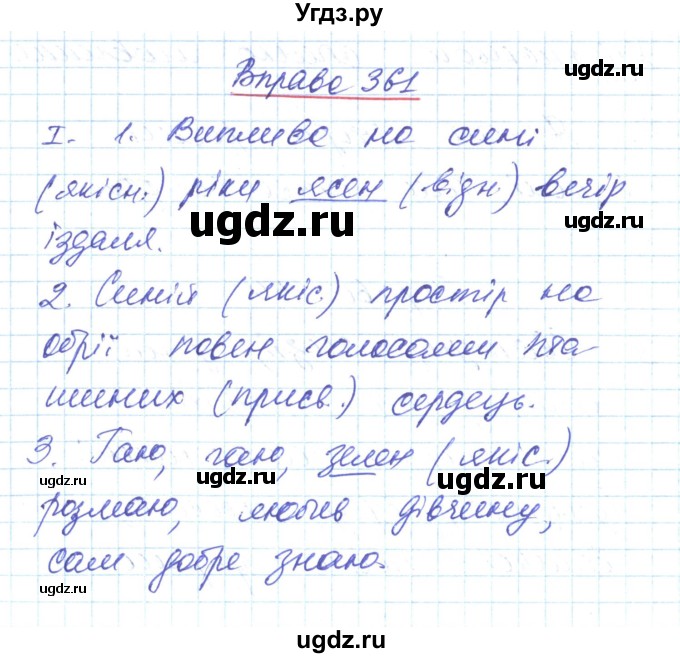 Угдз.ру
ugdz.ru
ugdz.ru
Вправа 361
І. 1. Виплива на сині
(якісн.) ріки ясен (відн.) вечір
ugdz.ru
іздаля.
2. Синій (якіс.) простір на
ugdz.ru
обрії повен голосами пта
шиних (присв.) сердець.
ugdz.ru
3. Гаю, гаю, зелен (якіс.)
ugdz.ru
ugdz.ru
розмаю, любив дівчину,
сам добре знаю.
ugdz.ru
ugdz.ru